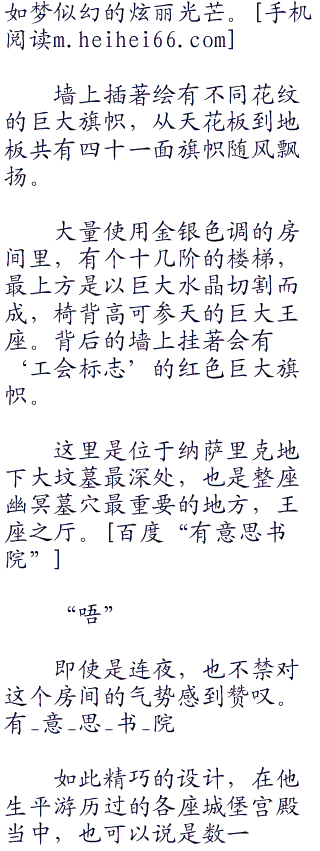 如梦似幻的炫丽光芒。[手机
阅读m.heihei66.com]
墙上插著绘有不同花纹
的巨大旗帜，从天花板到地
板共有四十一面旗帜随风飘
扬。
大量使用金银色调的房
间里，有个十几阶的楼梯，
最上方是以巨大水晶切割而
成，椅背高可参天的巨大王
座。背后的墙上挂著会有
‘工会标志’的红色巨大旗
帜。
这里是位于纳萨里克地
下大坟墓最深处，也是整座
幽冥墓穴最重要的地方，王
座之厅。[百度“有意思书
院”]
“唔”
即使是连夜，也不禁对
这个房间的气势感到赞叹。
有-意-思-书-院
如此精巧的设计，在他
生平游历过的各座城堡宫殿
当中，也可以说是数一